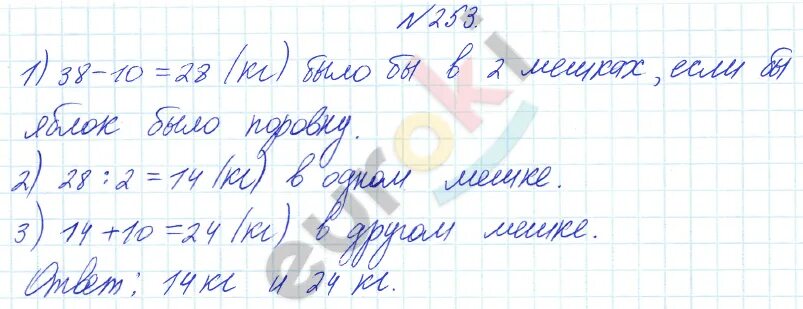 №253.
1) 38-10=28 (кг) было бы в 2 мешках, если бы
яблок было поровну.
2) 28:2=14 (кг) в одном мешке.
3) 14+10=24 (кг) в другом мешке.
Ответ: 14 кг и 24 кг.
euroki